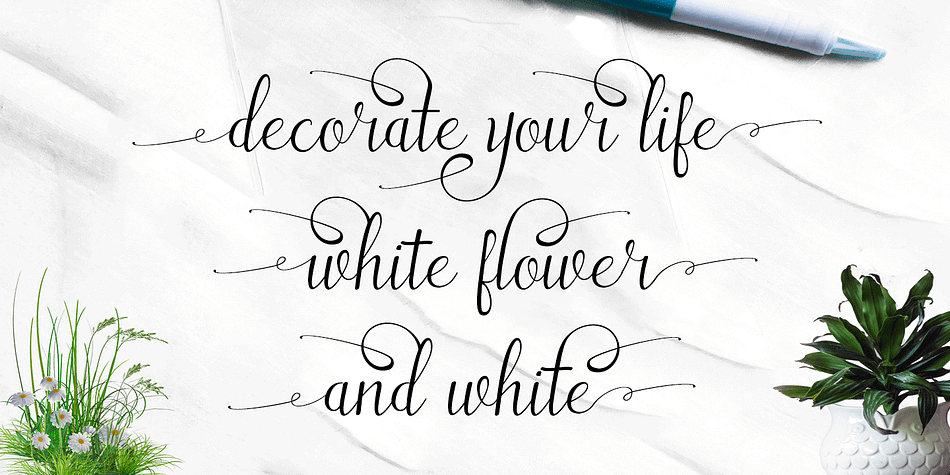 decorate your life
white flower
and white